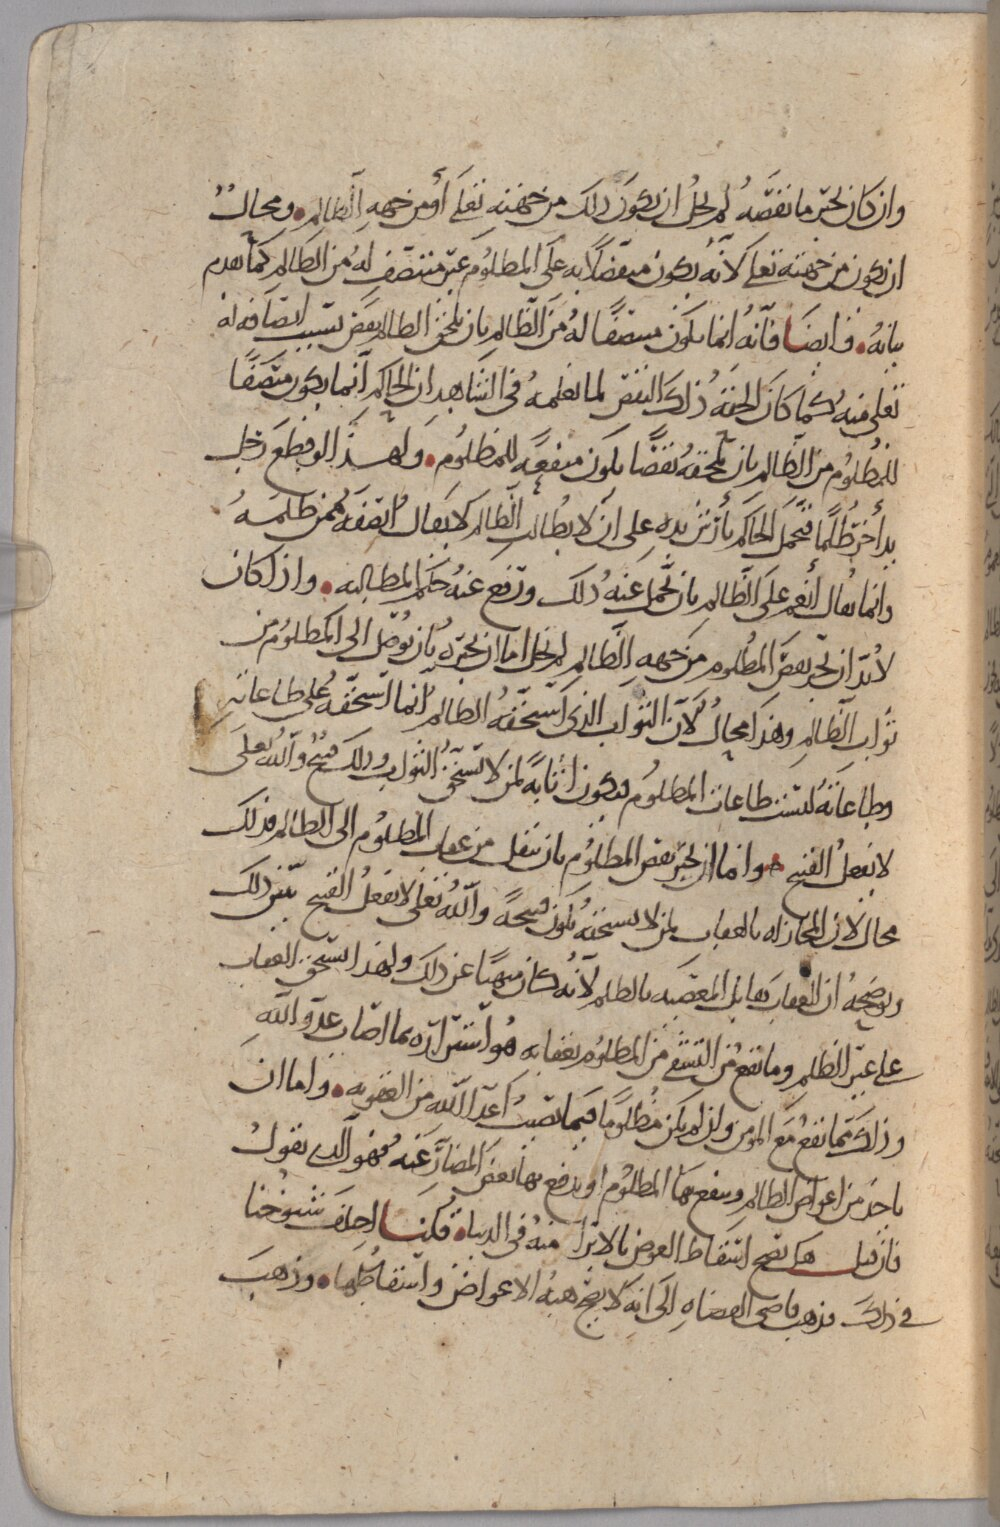 وان كان يجبر ما نقصه لم يخل ان يكون ذلك من جهته تعلى أو من جهه الظالم ومحال
ان يكون من جهته تعلى لانه يكون متفضلا به على المظلوم غير منتصف له من الظالم كما تقدم
بيانه وايضا فانه انما يكون منتصفا له من الظالم بان يلحق الظالم بعض بسبب انتصافه له
تعلى منه كما كان الحقه ذلك النقص لما نعلمه فى الشاهد ان الحاكم انما يكون منتصفا
للمظلوم من الظالم بان يلحقه نقصا يكون منفعه للمظلوم ولهذا لو قطع رجل
يد أخر ظلما فتحمل الحاكم بأرش يده على ان لا يطالب الظالم لا يقال انصفه ممن ظلمه
وانما يقال أنعم على الظالم بان تحمل عنه ذلك ودفع عنه حكم المطالبه واذا كان
لا بد ان يجبر بعض المظلوم من جهه الظالم لم يخل اما ان يجبره بان يوصل الى المظلوم من
ثواب الظالم وهذا محال لان الثواب الذى استحقه الظالم انما استحقه على طاعاته
وطاعاته ليست طاعات المظلوم فيكون اثابة لمن لا يستحق الثواب وذلك قبيح والله تعلى
لا يفعل القبيح واما ان يجبر بعض المظلوم بان ينقل من عقاب المظلوم الى الظالم فذلك
محال لان المجازاه بالعقاب لمن لا يستحقه يكون قبيحة والله تعلى لا يفعل القبيح يبين ذلك
ويوضحه ان العقاب يقابل المعصيه بالظلم لانه كان منهيا عن ذلك ولهذا استحق العقاب
على غير الظلم وما يقع من التشفى من المظلوم بعقابه هو استبراده بما اصاب عدو الله
وذلك مما يقع مع المومن وان لم يكن مظلوما فيما يصيب أعدا الله من العقوبه واما ان
ياخذ من اعواض الظالم وينفع بها المظلوم او يدفع بها بعض المضار عنه فهو الذى نقول
فان قيل هل يصح اسقاط العوض بالابرا منه فى الدنيا قلنا اختلف شيوخنا
فى ذلك فذهب قاضى القضاه الى انه لا يصح هبه الاعواض واسقاطها وذهب